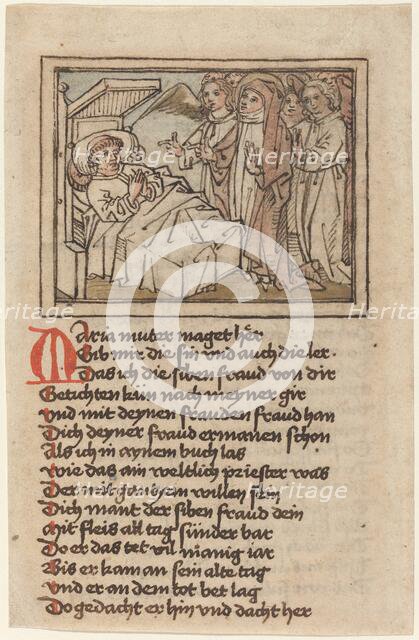 Maria muter maget her
Gib mir die sin vnd auch die ler
Das ich die siben fraud von dir
Getichten kun nach meyner gir
vnd mit deynen frauden fraud han
Dich deyner fraud ermanen schon
Als ich in aynem buch las
wie das ain weltlich priester was
Der mit gantzem willen sein
Dich mant der siben fraud dein
mit fleis all tag sunder bar
Do er das tet vil manig iar
Bis er kam an sein alte tag
vnd er an dem tot bet lag
Do gedacht er hin vnd dacht her
Heritage
Heritage
Heritage
Heritage
Heritage
Heritage
Heritage
Heritage